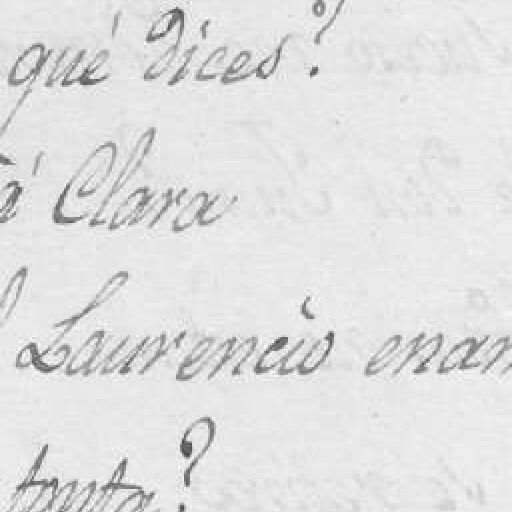 qué dices?
á Clara
Laurencio enam
tonta?